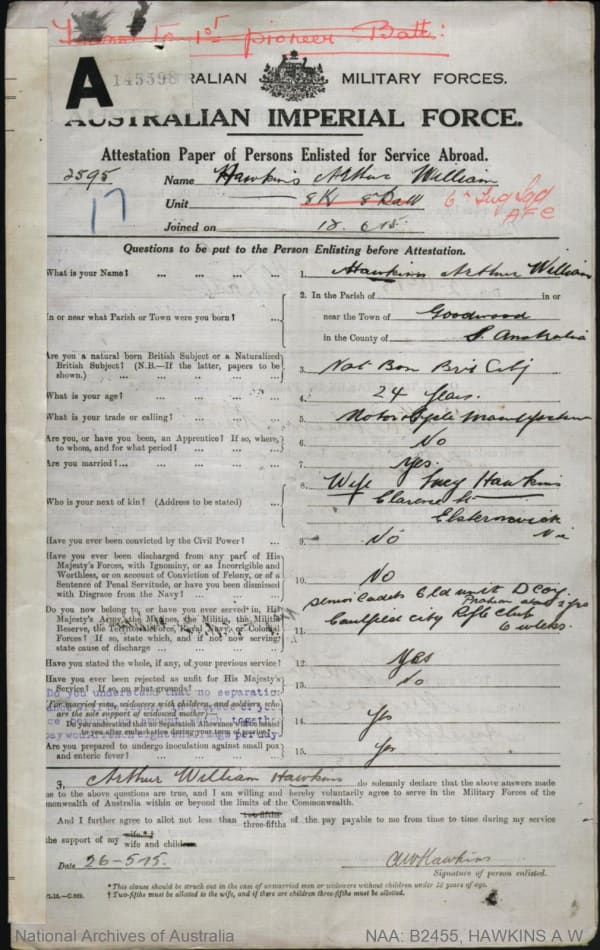 Transf to 1st pioneer Batt:
A 145598
AUSTRALIAN MILITARY FORCES.
AUSTRALIAN IMPERIAL FORCE.
Attestation Paper of Persons Enlisted for Service Abroad.
2595
Name Hawkins Arthur William
17
Unit
6th
AFC
Joined on
Questions to be put to the Person Enlisting before Attestation.
What is your Name? ... ... ... ... 1. Hawkins Arthur William
In or near what Parish or Town were you born? ... 2. In the Parish of in or
near the Town of Goodwood
in the County of S. Australia
Are you a natural born British Subject or a Naturalized
British Subject? (N.B.—If the latter, papers to be
shown.) ... ... ... ... 3. Nat Born Brit
What is your age? ... ... ... ... 4. 24 Years.
What is your trade or calling? ... ... ... 5. Motor Cycle
Are you, or have you been, an Apprentice? If so, where,
to whom, and for what period? ... ... ... 6. No
Are you married?... ... ... ... ... 7. Yes.
Who is your next of kin? (Address to be stated) ... 8. Wife Lucy Hawkins
Clarence St
Elsternwick
Vic
Have you ever been convicted by the Civil Power? ... 9. No
Have you ever been discharged from any part of His
Majesty's Forces, with Ignominy, or as Incorrigible and
Worthless, or on account of Conviction of Felony, or of a
Sentence of Penal Servitude, or have you been dismissed
with Disgrace from the Navy? ... ... ... 10. No
Do you now belong to, or have you ever served in, His
Majesty's Army, the Marines, the Militia, the Militia
Reserve, the Territorial Force, Royal Navy, or Colonial
Forces? If so, state which, and if not now serving,
state cause of discharge ... ... ... 11. Senior Cadets Old unit D Coy.
Caulfield City Rifle Club
6 weeks.
Have you stated the whole, if any, of your previous service? 12. Yes
Have you ever been rejected as unfit for His Majesty's
Service? If so, on what grounds? 13. No
Do you understand that no separation
For married men, widowers with children, and soldiers who
are the sole support of widowed mother—
Do you understand that no Separation Allowance will be issued
to you after embarkation during your term of service? 14. Yes
per day.
Are you prepared to undergo inoculation against small pox
and enteric fever? ... ... ... ... 15. Yes
I, Arthur William Hawkins do solemnly declare that the above answers made
me to the above questions are true, and I am willing and hereby voluntarily agree to serve in the Military Forces of the
monwealth of Australia within or beyond the limits of the Commonwealth.
And I further agree to allot not less than two-fifths three-fifths of the pay payable to me from time to time during my service
the support of my wife* wife and children
Date 26-5-15. AW Hawkins
Signature of person enlisted.
* This clause should be struck out in the case of unmarried men or widowers without children under 18 years of age.
† Two-fifths must be allotted to the wife, and if there are children three-fifths must be allotted.
National Archives of Australia NAA: B2455, HAWKINS A W